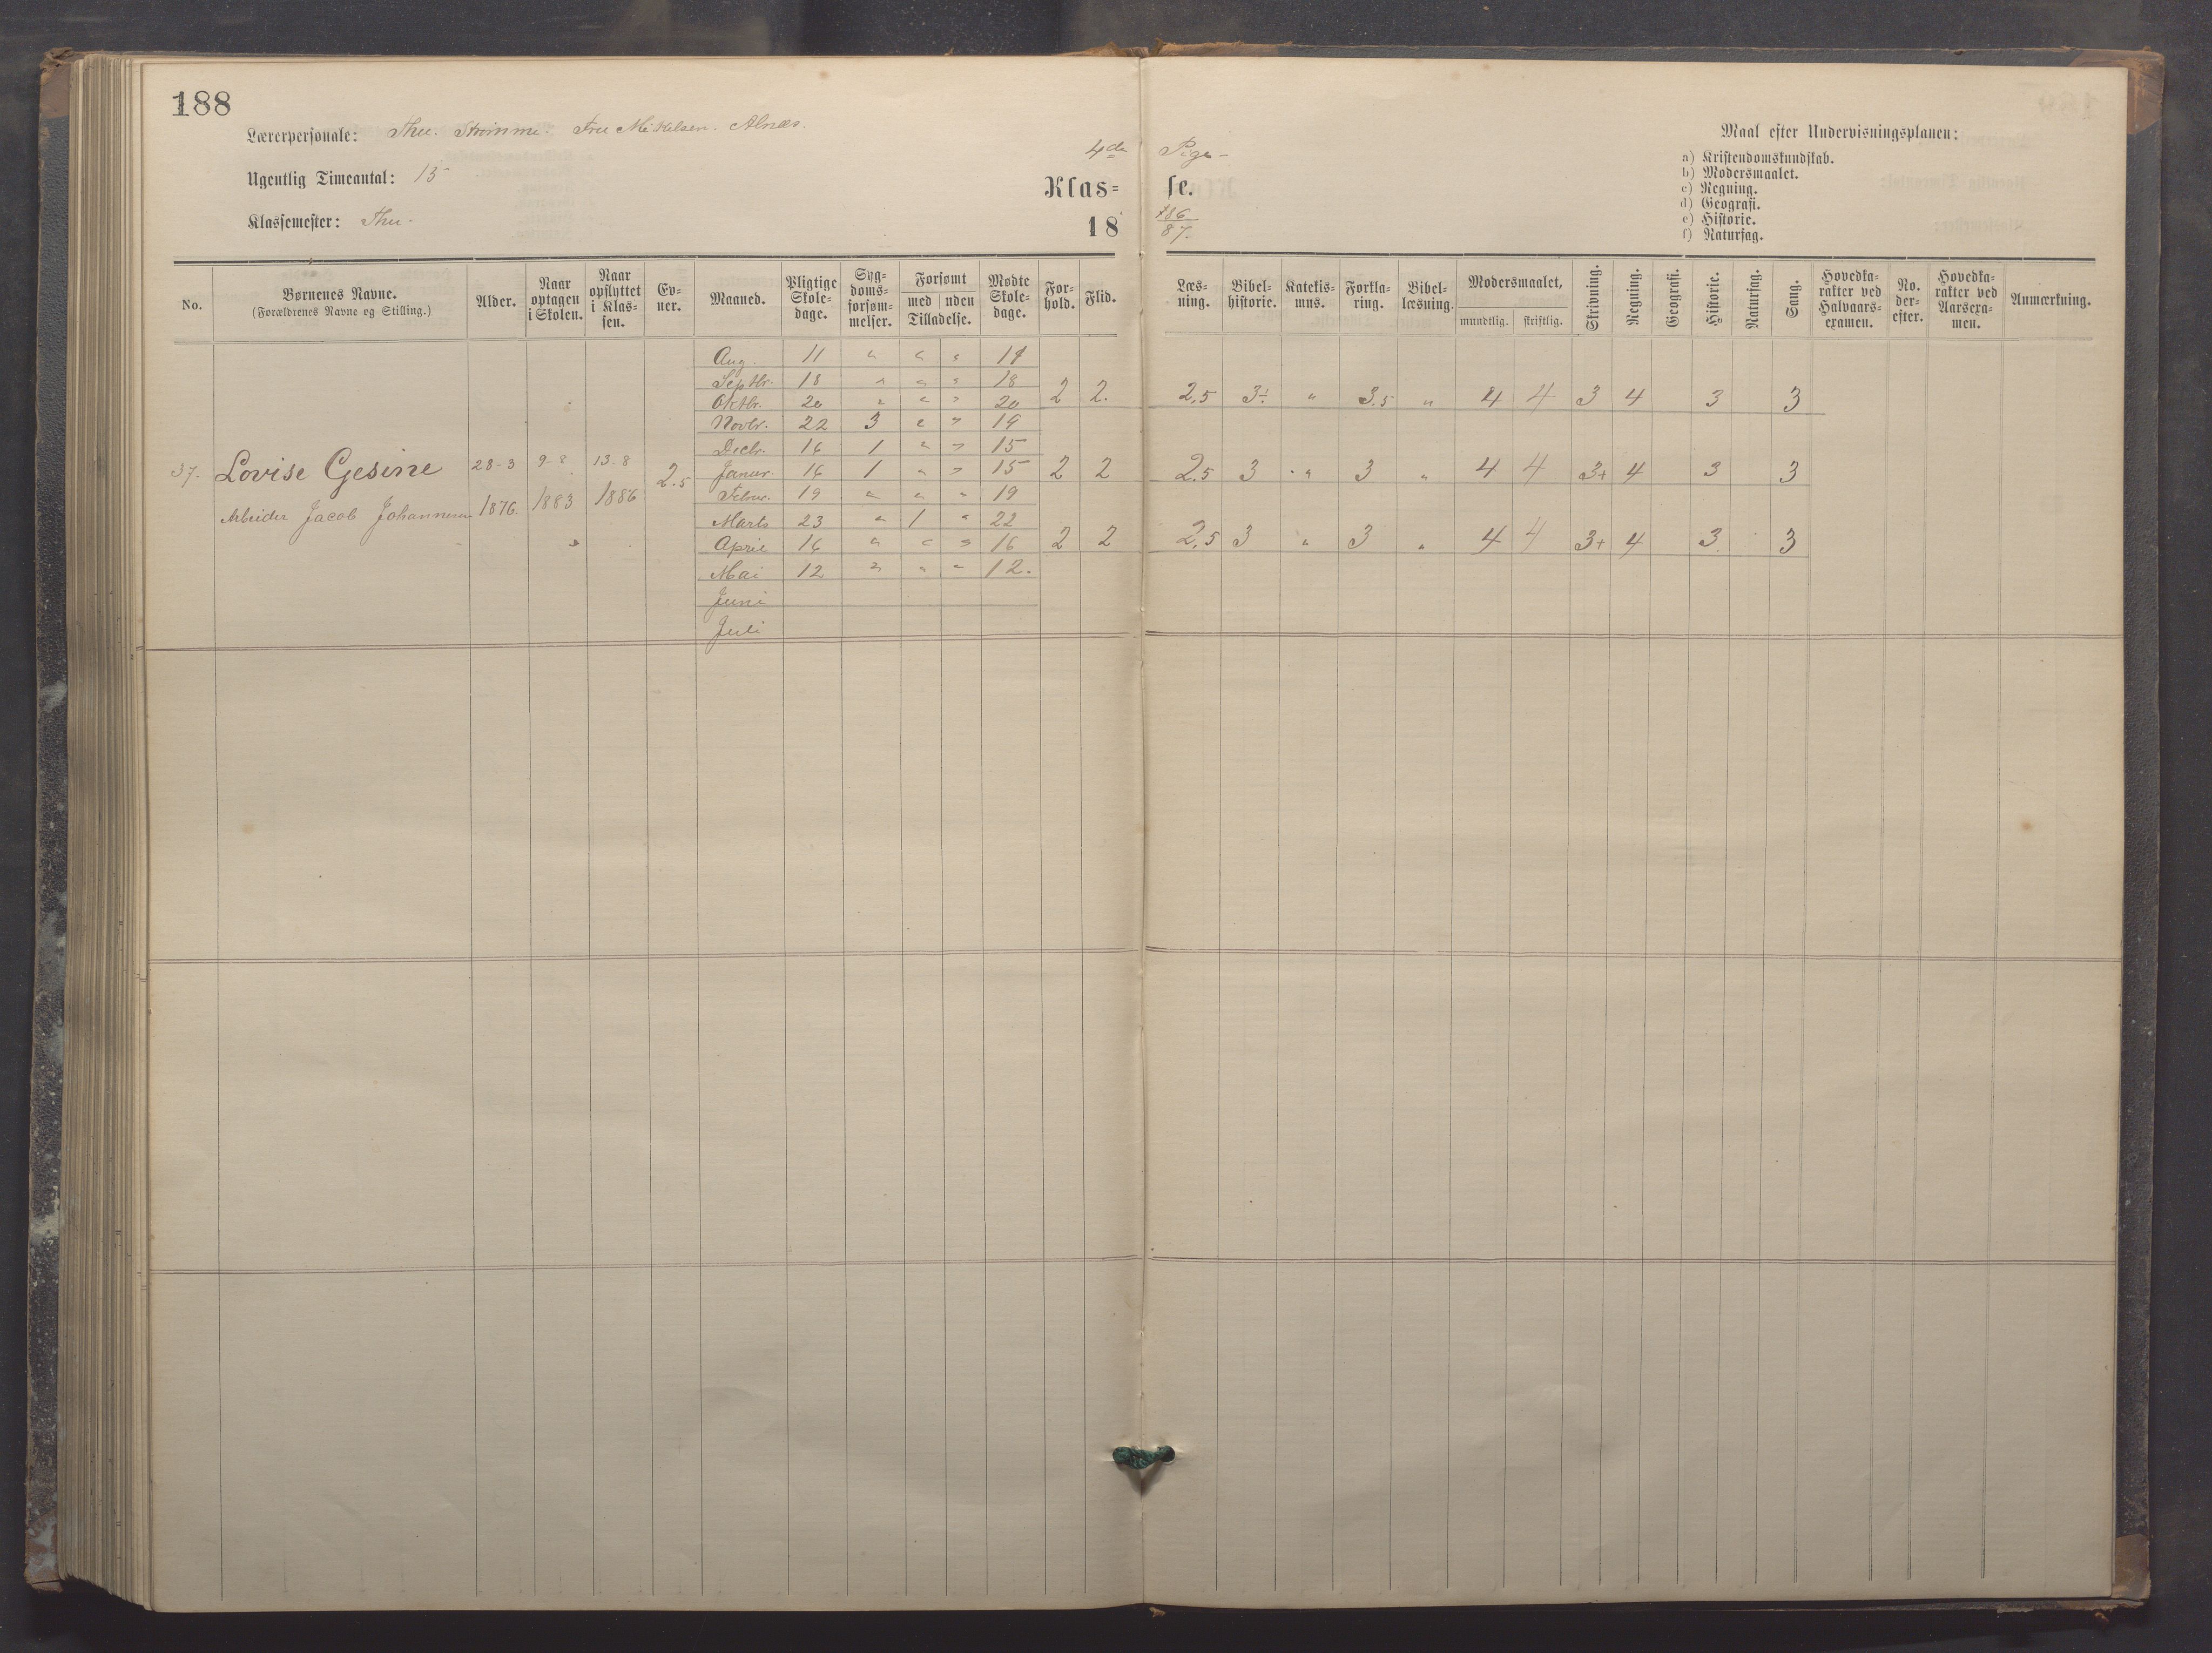 188
Lærerpersonale: Thu. Strømme. Fru Mikkelsen. Alnæs.
Ugentlig Timeantal: 15
Klassemester: Thu.
4de Pige-
Klas= se.
18 86/87.
Maal efter Undervisningsplanen:
a) Kristendomskundskab.
b) Modersmaalet.
c) Regning.
d) Geografi.
e) Historie.
f) Naturfag.
No. Børnenes Navne. (Forældrenes Navne og Stilling.) Alder. Naar optagen i Skolen. Naar opflyttet i Klas-sen. Ev-ner. Maaned. Pligtige Skole-dage. Syg-doms-forsøm-melser. Forsømt med uden Tilladelse. Mødte Skole-dage. For-hold. Flid. Læs-ning. Bibel-historie. Katekis-mus. Forkla-ring. Bibel-læsning. Modersmaalet, mundtlig. skriftlig. Skrivning. Regning. Geografi. Historie. Naturfag. Sang. Hovedka-rakter ved Halvaars-examen. No. der-efter. Hovedka-rakter ved Aarsexa-men. Anmærkning.
Aug. 11 " " " 11
Septbr. 18 " " " 18
Oktbr. 20 " " " 20 2 2. 2,5 3÷ " 3.5 " 4 4 3 4 3 3
Novbr. 22 3 " " 19
Decbr. 16 1 " " 15
37. Lovise Gesine 28-3 9-8 13-8 2.5 Januar. 16 1 " " 15 2 2 2.5 3 " 3 " 4 4 3+ 4 3 3
Februar. 19 " " " 19
Arbeider Jacob Johannesen 1876 1883 1886 Marts 23 " 1 " 22
April 16 " " " 16 2 2 2,5 3 " 3 " 4 4 3+ 4 3 3
Mai 12 " " " 12.
Juni
Juli